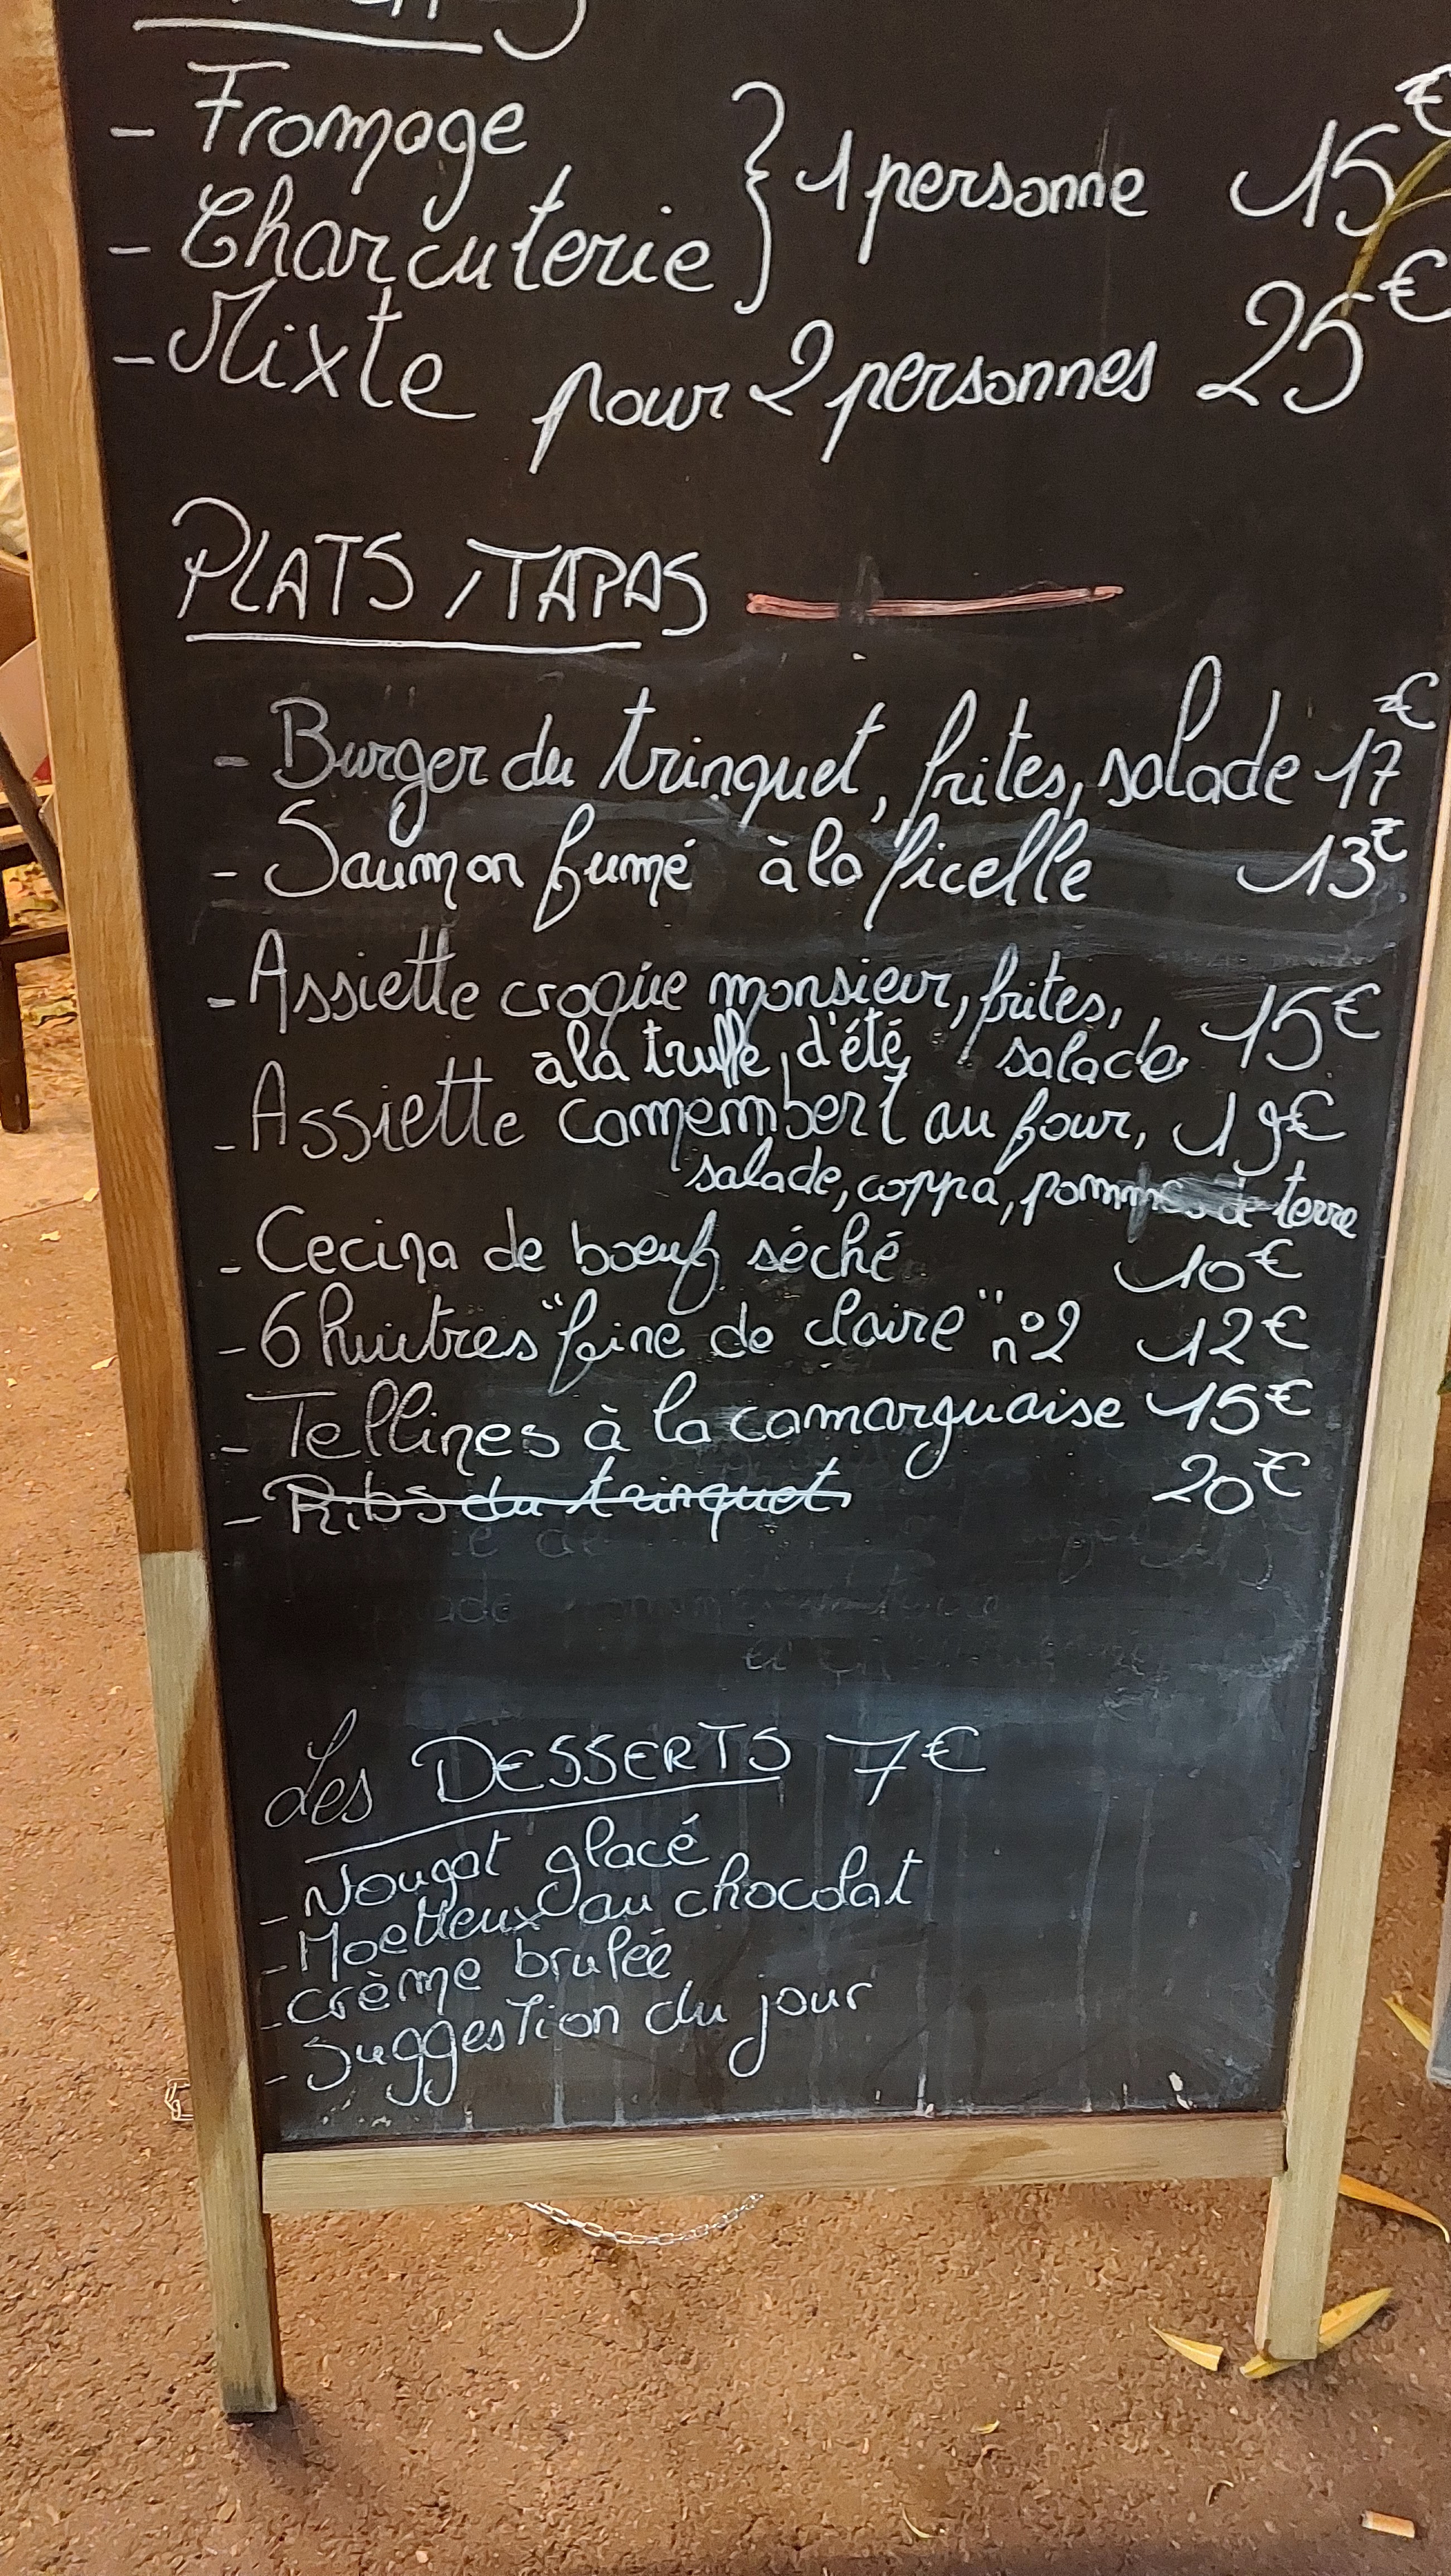 - Fromage } 1 personne 15€
- Charcuterie
- Mixte pour 2 personnes 25€
PLATS / TAPAS
- Burger du trinquet, frites, salade 17€
- Saumon fumé à la ficelle 13€
- Assiette croque monsieur, frites, 15€
à la truffe d'été, salade
- Assiette camembert au four, 19€
salade, coppa, pommes de terre
- Cecina de boeuf séché 10€
- 6 huitres "fine de claire" n°2 12€
- Tellines à la camarguaise 15€
- Ribs du trinquet 20€
Les DESSERTS 7€
- Nougat glacé
- Moelleux au chocolat
- crème brulée
- Suggestion du jour